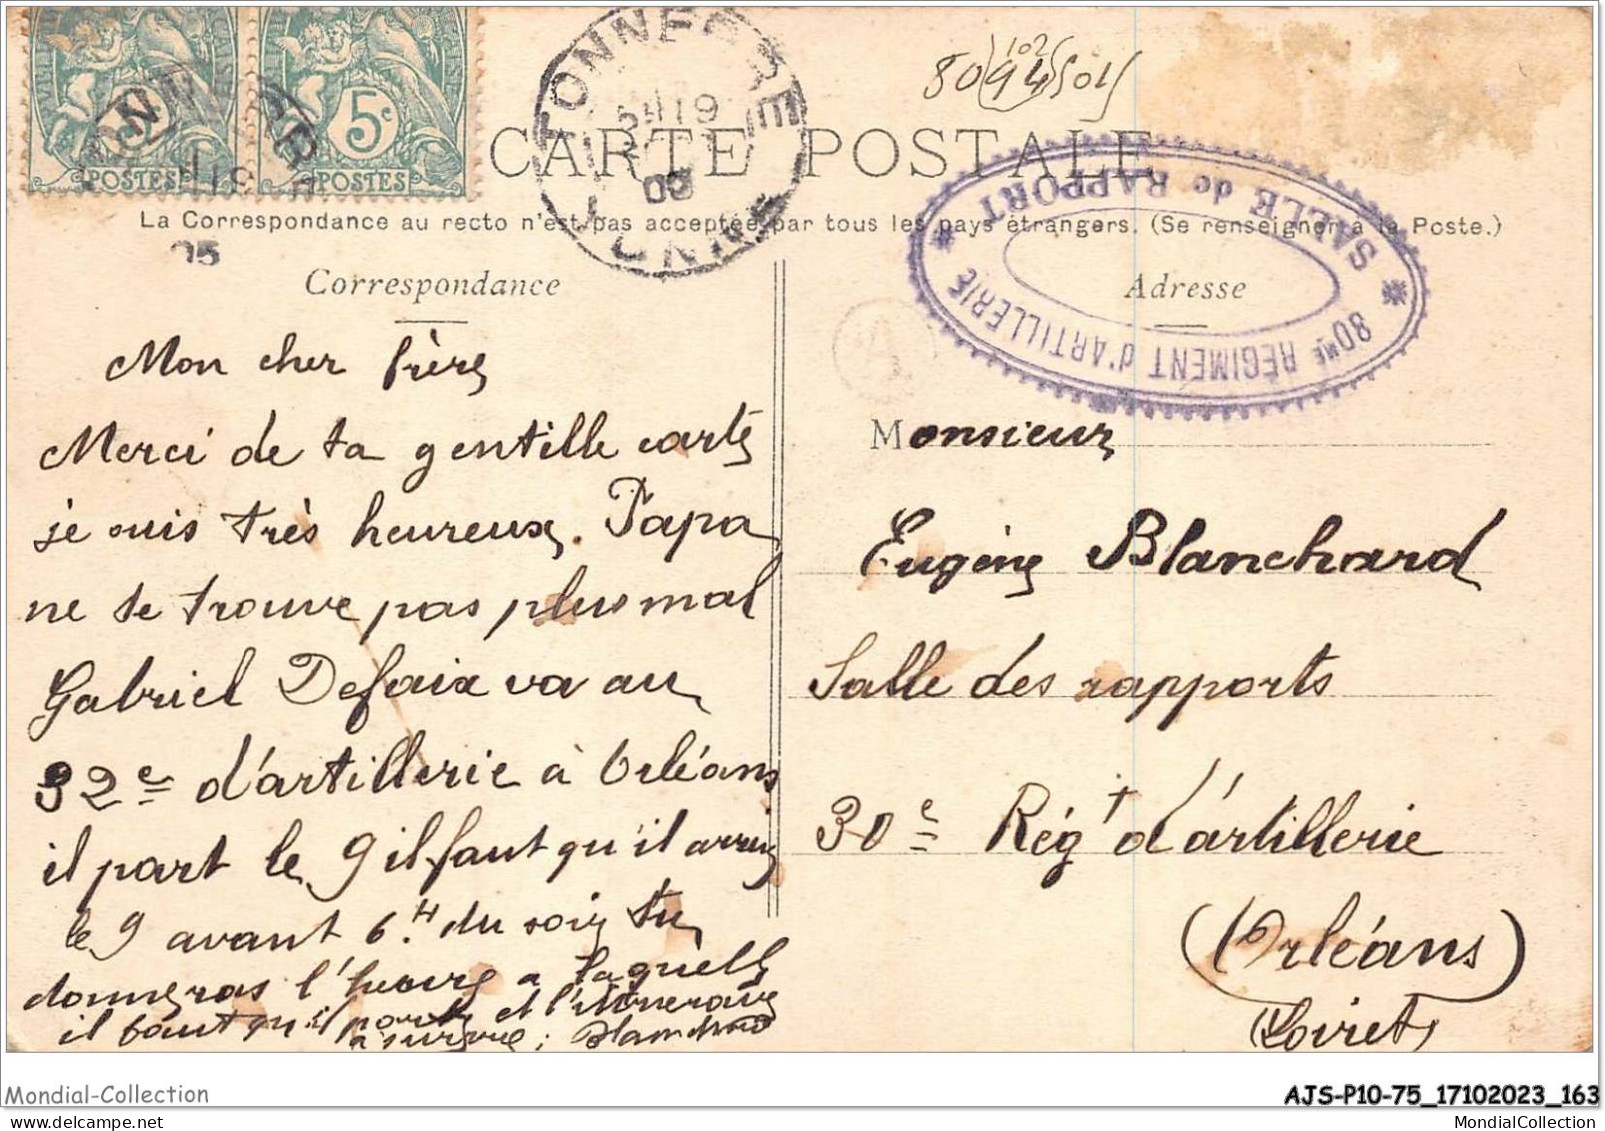 5c
POSTES
5c
POSTES
TONNERRE
YONNE
80 94 501
102
CARTE POSTALE
La Correspondance au recto n'est pas acceptée par tous les pays étrangers. (Se renseigner à la Poste.)
05
SALLE de RAPPORT
30ME RÉGIMENT d'ARTILLERIE
Correspondance
Adresse
Mon cher frère
Merci de ta gentille carte
je suis très heureux. Papa
ne se trouve pas plus mal
Gabriel Defaix va au
32e d'artillerie à Orléans
il part le 9 il faut qu'il arrive
le 9 avant 6H du soir tu
donneras l'heure a laquelle
il faut qu'il parte et l'itineraire
a suivre; Blanchard
Monsieur
Eugène Blanchard
Salle des rapports
30e Régt d'artillerie
(Orléans)
(Loiret)
Mondial-Collection
AJS-P10-75_17102023_163
MondialCollection